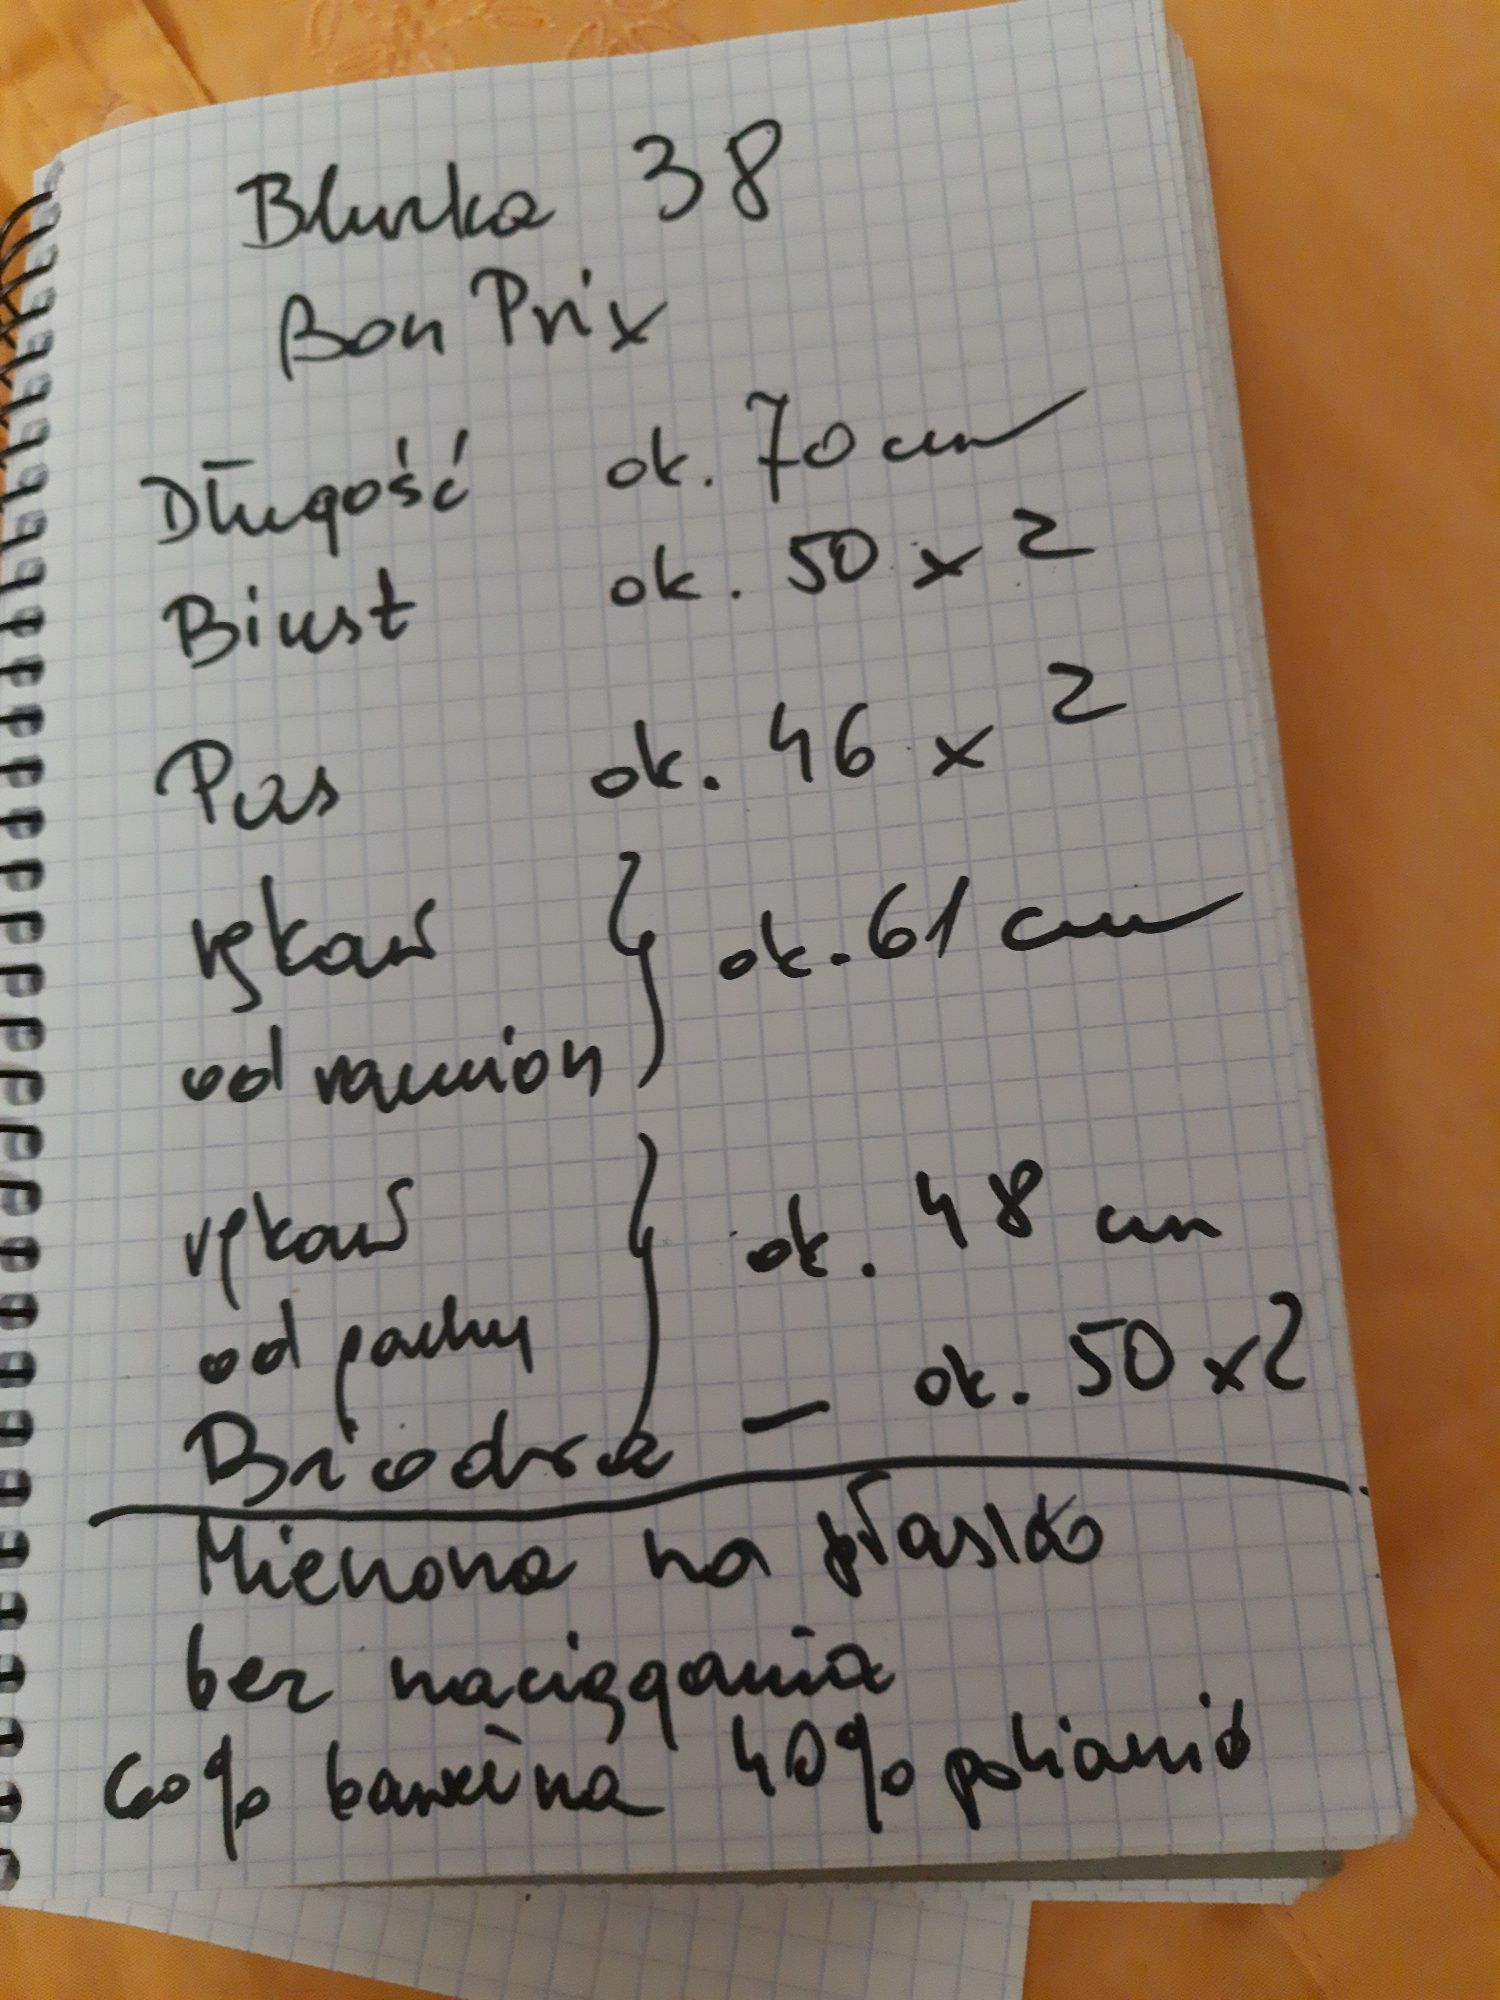 Bluzka 38
Bon Prix
Długość ok. 70 cm
Biust ok. 50 x 2
Pas ok. 46 x 2
rękaw
od ramion } ok. 61 cm
rękaw
od pachy } ok. 48 cm
Biodra — ok. 50 x 2
Mierzona na płasko
bez naciągania
60% bawełna 40% poliamid